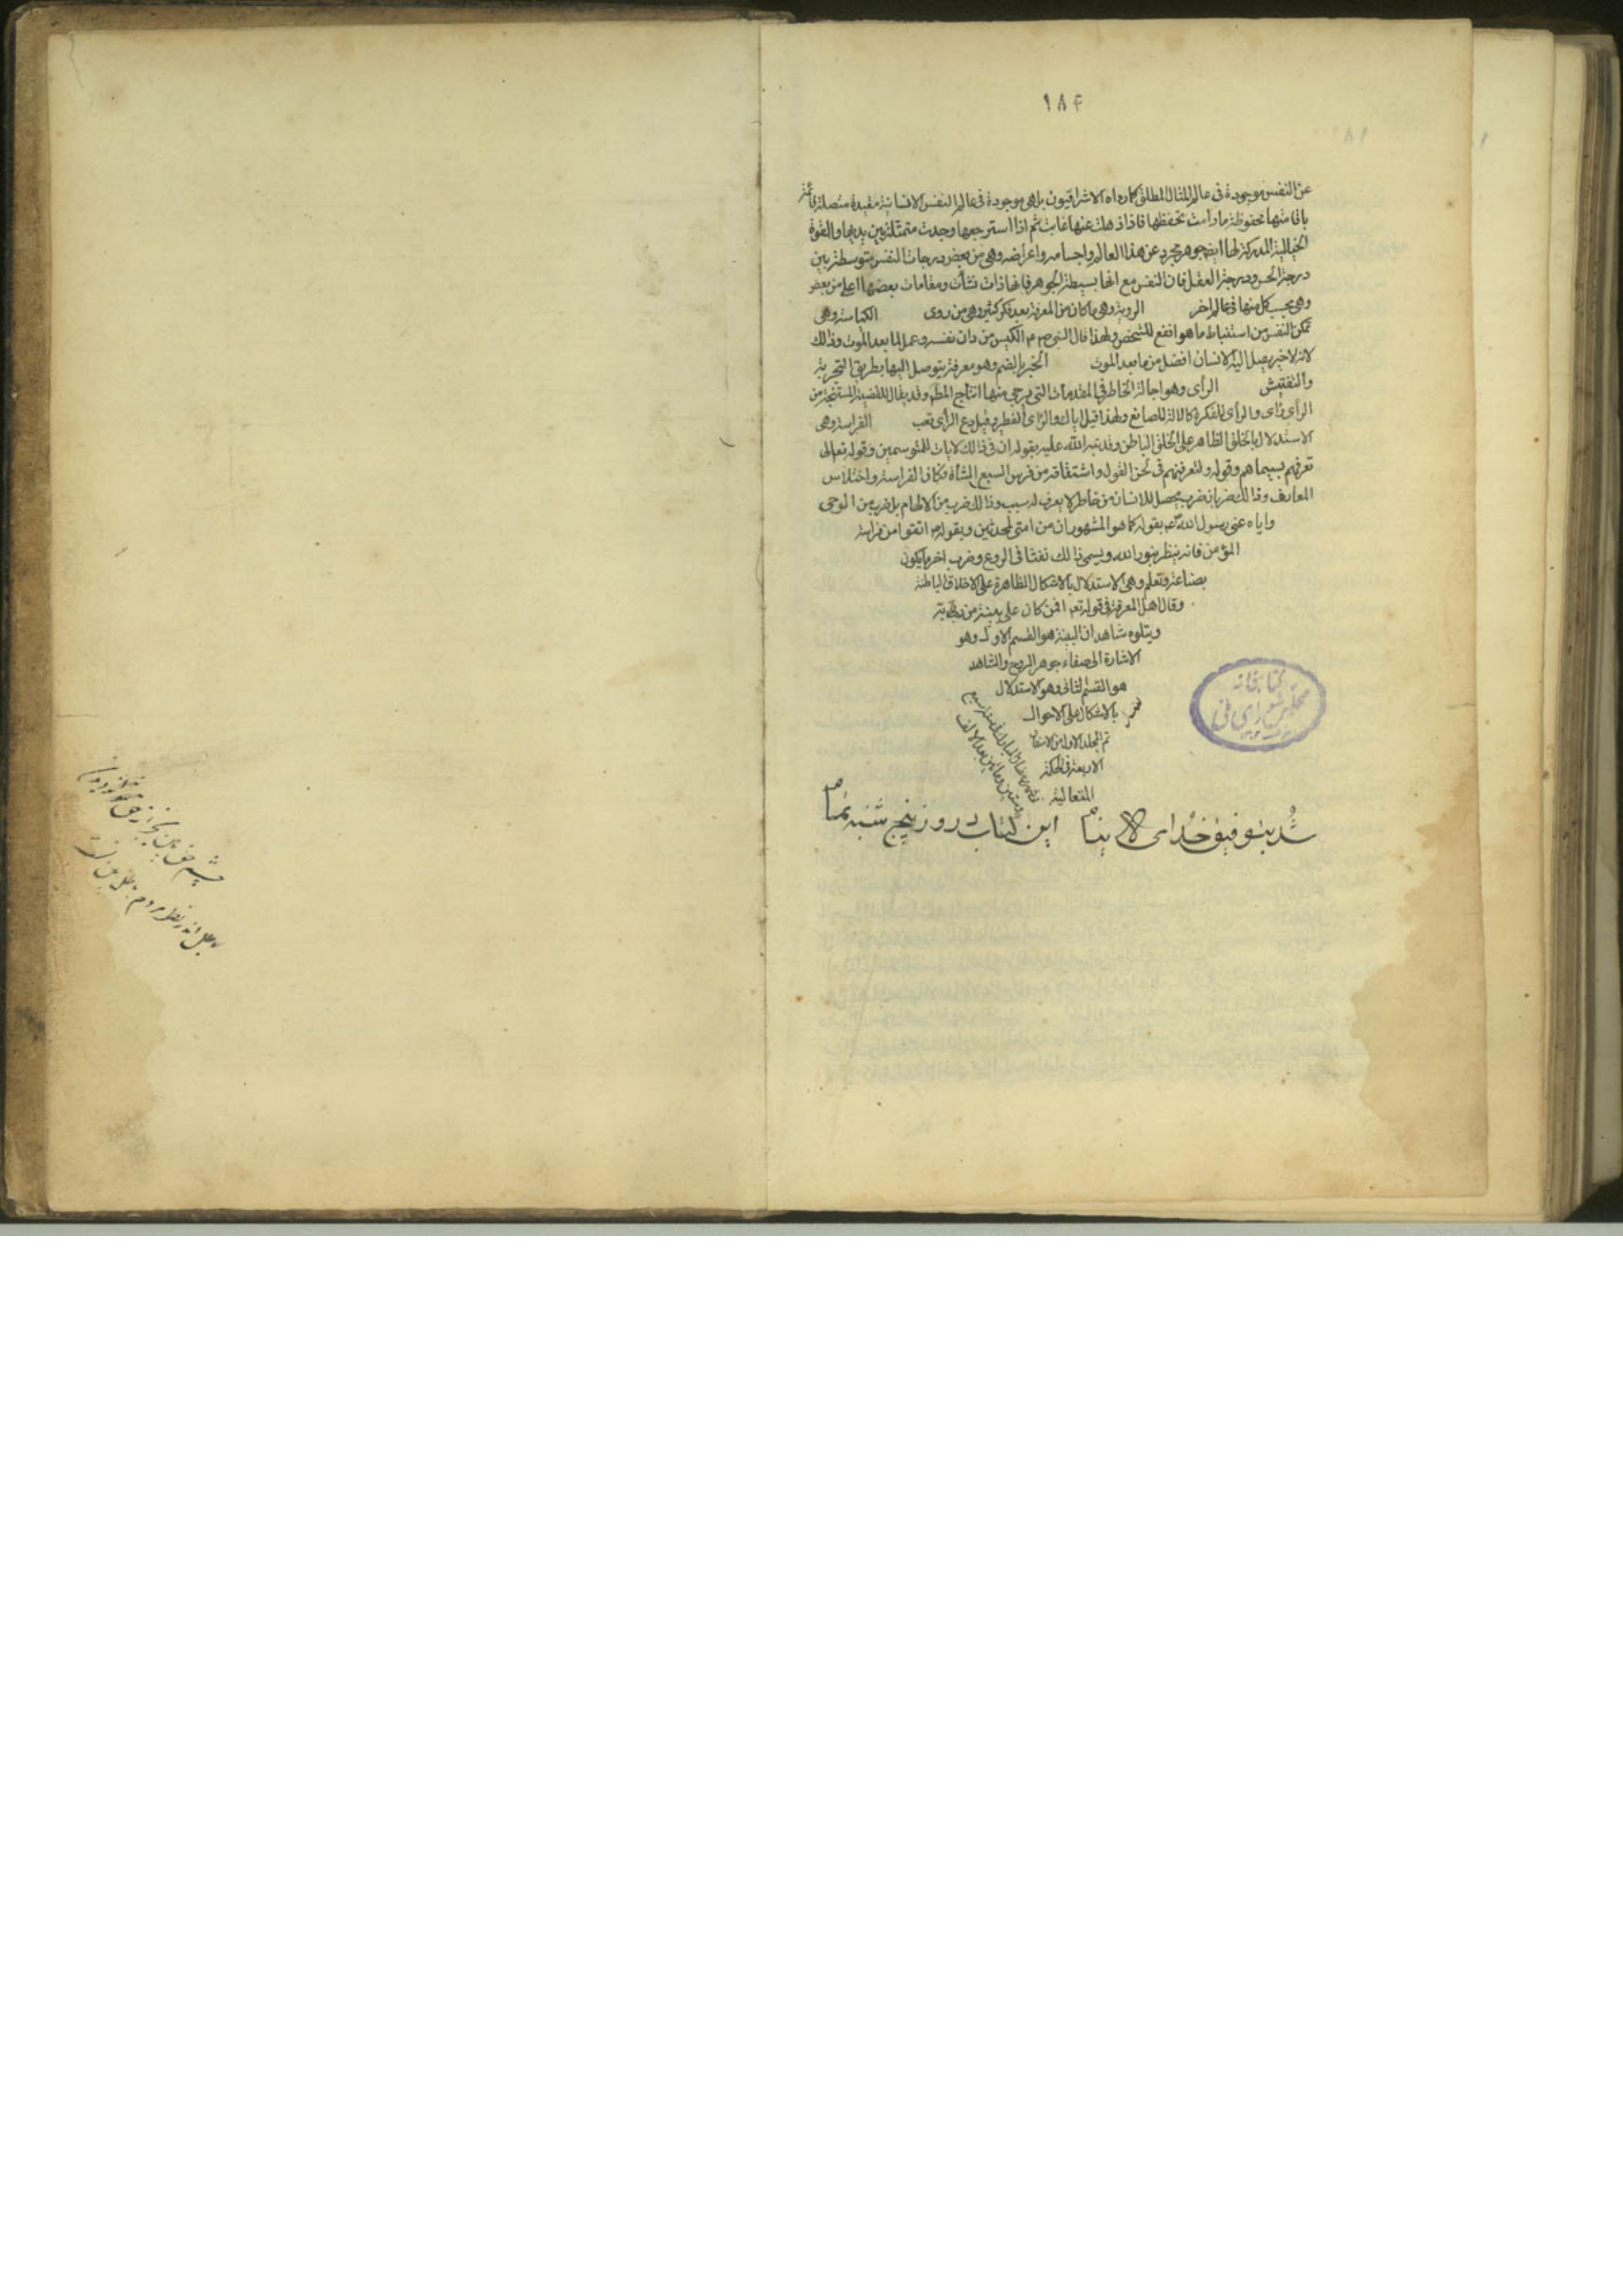 ۱۸۴
عن النفس موجودة فى عالم المثال المطلق كما رواه الاشراقيون بل هى موجودة فى عالم النفس الانسانية مقيدة متصلة قائمة
باقامتها محفوظة مادامت تحفظها فاذا ذهلت عنها غابت ثم اذا استرجعها وجدت متمثلة بين يديها والقوة
الخيالية المدركة لها ايضا جوهر مجرد عن هذا العالم واجسامه واعراضه وهى من بعض درجات النفس متوسطة بين
درجة الحس ودرجة العقل فان النفس مع انها بسيطة الجوهر فانها ذات نشأت ومقامات بعضها اعلى من بعض
وهى بحسب كل منها فى عالم اخر الروية وهى ما كان من المعرفة بعد فكر كثير وهى من روى الكياسة وهى
تمكن النفس من استنباط ما هو انفع للشخص ولهذا قال النبى ص م الكيس من دان نفسه وعمل لما بعد الموت وذلك
لانه لا خير يصل اليه الانسان افضل من ما بعد الموت الخبر بالضم وهو معرفة يتوصل اليها بطريق التجربة
والتفتيش الرأى وهو اجالة الخاطر فى المقدمات التى يرجى منها انتاج المط وقد يقال للقضية المستنتجة من
الرأى رأى والرأى للفكرة كالالة للصانع ولهذا قيل اياك والرأى الفطير وقيل دع الرأى تغب الفراسة وهى
الاستدلال بالخلق الظاهر على الخلق الباطن وقد نبه الله عليه بقوله ان فى ذالك لايات للمتوسمين وقوله تعالى
تعرفهم بسيماهم وقوله ولتعرفنهم فى لحن القول واشتقاقه من فرس السبع الشاة فكان الفراسة اختلاس
المعارف وذالك ضربان ضرب يحصل للانسان من خاطر لا يعرف له سبب وذالك ضرب من الالهام بل ضرب من الوحى
واياه عنى رسول الله بقوله كما هو المشهور ان من امتى لمحدثين وبقوله اتقوا من فراسة
المؤمن فانه ينظر بنور الله ويسمى ذالك نفثا فى الروع وضرب اخر ما يكون
بصناعة وتعلم وهى الاستدلال بالاشكال الظاهرة على الاخلاق الباطنة
وقال اهل المعرفة فى قوله تعم افمن كان على بينة من ربه
ويتلوه شاهد ان البينة هو القسم الاول وهو
الاشارة الى صفاء جوهر الروح والشاهد
هو القسم الثانى وهو الاستدلال
بالاشكال على الاحوال
تم المجلد الاول من الاسفار
الاربعة فى الحكمة
المتعالية
شد بتوفيق خداى لا ينام اين كتاب در روز پنج شنبه تمام
كتابخانه
مجلس شوراى ملى